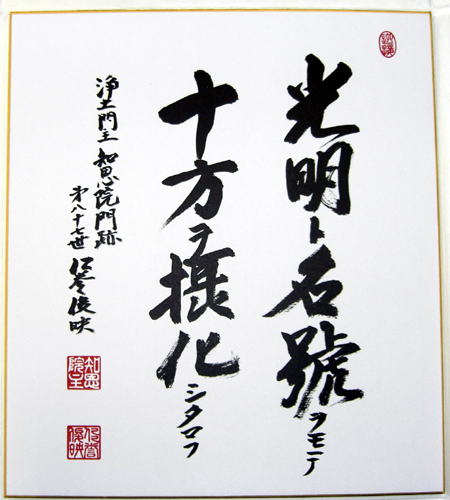 光明ト名號ヲモテ
十方ヲ摂化シタマフ
浄土門主 知恩院門跡
第八十七世 誉俊映
知恩
俊映